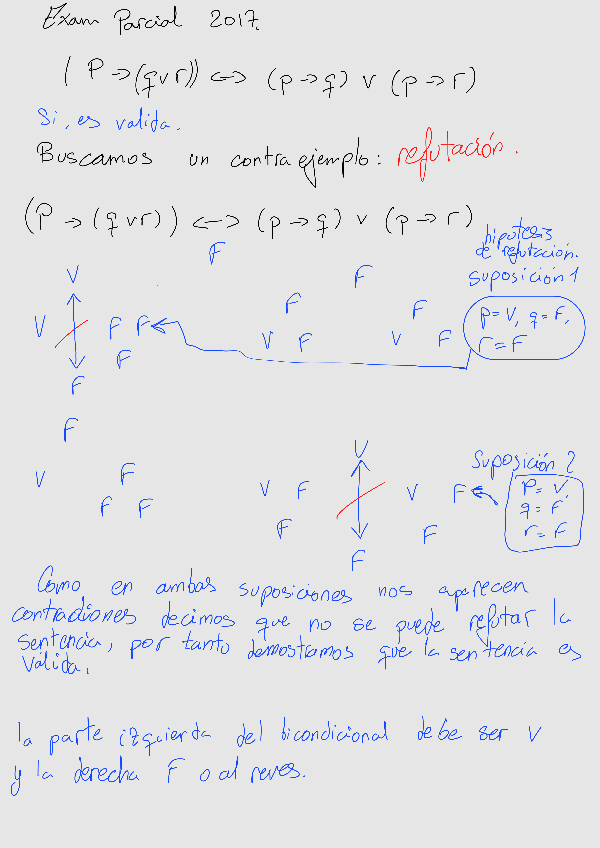 Exam Parcial 2017.
(P → (q v r)) <-> (p → q) v (p → r)
Si, es valida.
Buscamos un contraejemplo: refutación.
(P → (q v r)) <-> (p → q) v (p → r)
hipotesis
de refutación.
F
Suposición 1
V F
F
V F F V F F V F
p=V, q=F,
r=F
F
F
F
V
Suposición 2
V F V F V F
P=V,
q=F,
r=F
F F F F
F
Como en ambas suposiciones nos aparecen
contradiones decimos que no se puede refutar la
sentencia, por tanto demostramos que la sentencia es
Válida.
la parte izquierda del bicondicional debe ser V
y la derecha F o al reves.